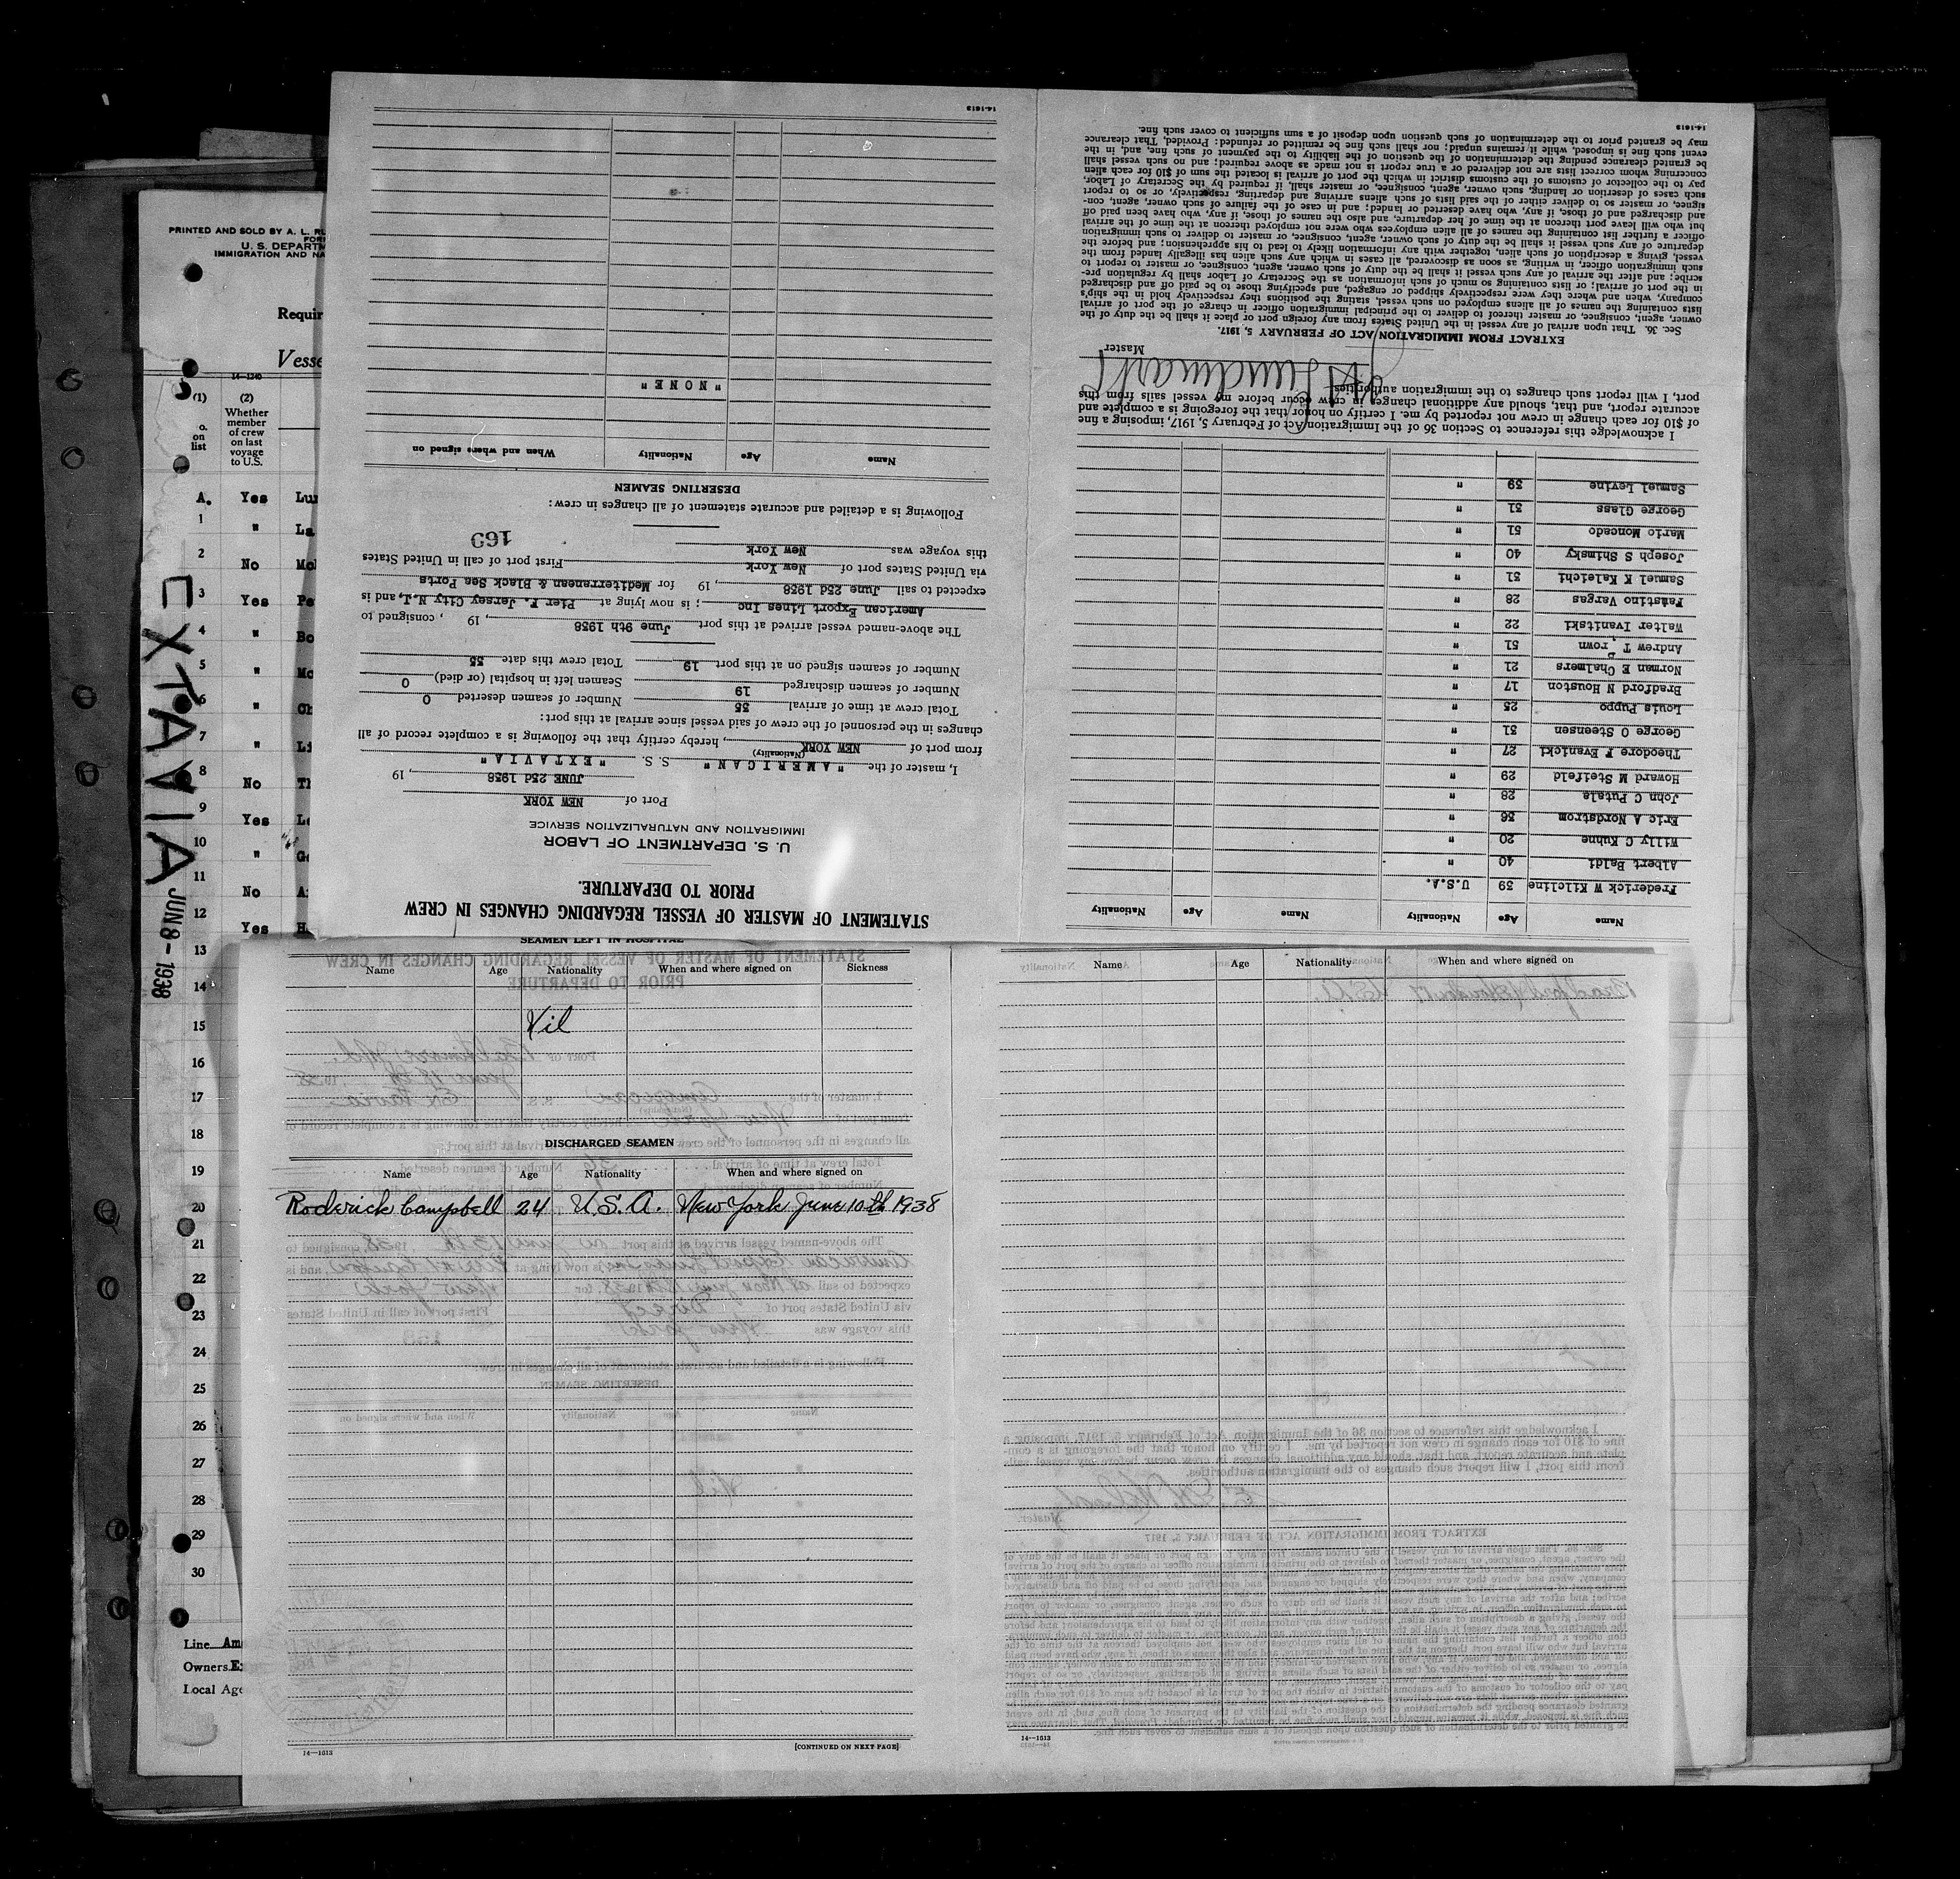 STATEMENT OF MASTER OF VESSEL REGARDING CHANGES IN CREW
PRIOR TO DEPARTURE.
U. S. DEPARTMENT OF LABOR
IMMIGRATION AND NATURALIZATION SERVICE
Port of NEW YORK
JUNE 23d 1938, 19
I, master of the "AMERICAN" S. S. "EXTAVIA"
(Nationality)
from port of NEW YORK, hereby certify that the following is a complete record of all
changes in the personnel of the crew of said vessel since arrival at this port:
Total crew at time of arrival 35 Number of seamen deserted 0
Number of seamen discharged 19 Seamen left in hospital (or died) 0
Number of seamen signed on at this port 19 Total crew this date 35
The above-named vessel arrived at this port June 9th 1938, 19 , consigned to
American Export Lines Inc; is now lying at Pier F. Jersey City N.J, and is
expected to sail June 23d 1938, 19 for Mediterranean & Black Sea Ports
via United States port of New York First port of call in United States
this voyage was New York
169
Following is a detailed and accurate statement of all changes in crew:
DESERTING SEAMEN
Name Age Nationality When and where signed on
"NONE"
14-1613
Name Age Nationality Name Age Nationality
Frederick W Kilcline 39 U.S.A.
Albert Baldi 40 "
Willy C Kuhne 20 "
Eric A Nordstrom 36 "
John C Putala 28 "
Howard M Steifeld 29 "
Theodore F Evanicki 27 "
George O Steensen 31 "
Louis Puppo 25 "
Bradford N Houston 17 "
Norman E Chalmers 21 "
Andrew T Brown 51 "
Walter Ivanitski 22 "
Faustino Vargas 28 "
Samuel K Kaleichi 31 "
Joseph S Shimsky 40 "
Mario Moncado 51 "
George Glass 31 "
Samuel Levine 39 "
I acknowledge this reference to Section 36 of the Immigration Act of February 5, 1917, imposing a fine
of $10 for each change in crew not reported by me. I certify on honor that the foregoing is a complete and
accurate report, and that, should any additional changes in crew occur before my vessel sails from this
port, I will report such changes to the immigration authorities.
Master
EXTRACT FROM IMMIGRATION ACT OF FEBRUARY 5, 1917.
Sec. 36. That upon arrival of any vessel in the United States from any foreign port or place it shall be the duty of the
owner, agent, consignee, or master thereof to deliver to the principal immigration officer in charge of the port of arrival
lists containing the names of all aliens employed on such vessel, stating the positions they respectively hold in the ship's
company, when and where they were respectively shipped or engaged, and specifying those to be paid off and discharged
in the port of arrival; or lists containing so much of such information as the Secretary of Labor shall by regulation pre-
scribe; and after the arrival of any such vessel it shall be the duty of such owner, agent, consignee, or master to report to
such immigration officer, in writing, as soon as discovered, all cases in which any such alien has illegally landed from the
vessel, giving a description of such alien, together with any information likely to lead to his apprehension; and before the
departure of any such vessel it shall be the duty of such owner, agent, consignee, or master to deliver to such immigration
officer a further list containing the names of all alien employees who were not employed thereon at the time of the arrival
but who will leave port thereon at the time of her departure, and also the names of those, if any, who have been paid off
and discharged and of those, if any, who have deserted or landed; and in case of the failure of such owner, agent, con-
signee, or master so to deliver either of the said lists of such aliens arriving and departing, respectively, or so to report
such cases of desertion or landing, such owner, agent, consignee, or master shall, if required by the Secretary of Labor,
pay to the collector of customs of the customs district in which the port of arrival is located the sum of $10 for each alien
concerning whom correct lists are not delivered or a true report is not made as above required; and no such vessel shall
be granted clearance pending the determination of the question of the liability to the payment of such fine, and, in the
event such fine is imposed, while it remains unpaid; nor shall such fine be remitted or refunded: Provided, That clearance
may be granted prior to the determination of such question upon deposit of a sum sufficient to cover such fine.
14-1613
PRINTED AND SOLD BY A. L. RU
FOR
U. S. DEPARTM
IMMIGRATION AND NA
Requir
Vesse
14-1240
(1) (2)
o. on list
Whether member of crew on last voyage to U.S.
A. Yes Lur
1 " La
2 No Mo
3 Yes Pe
4 " Bo
5 " Mc
6 " Ch
7 " Li
8 No Th
9 Yes Le
10 " Ge
11 No
12 Yes H
13
14
15
16
17
18
19
20
21
22
23
24
25
26
27
28
29
30
Line Am
Owners E
Local Age
EXTAVIA
JUN 8-1938
SEAMEN LEFT IN HOSPITAL
Name Age Nationality When and where signed on Sickness
Nil
DISCHARGED SEAMEN
Name Age Nationality When and where signed on
Roderick Campbell 24 U.S.A. New York June 10th 1938
14—1613
[CONTINUED ON NEXT PAGE]
Name Age Nationality When and where signed on
14—1613